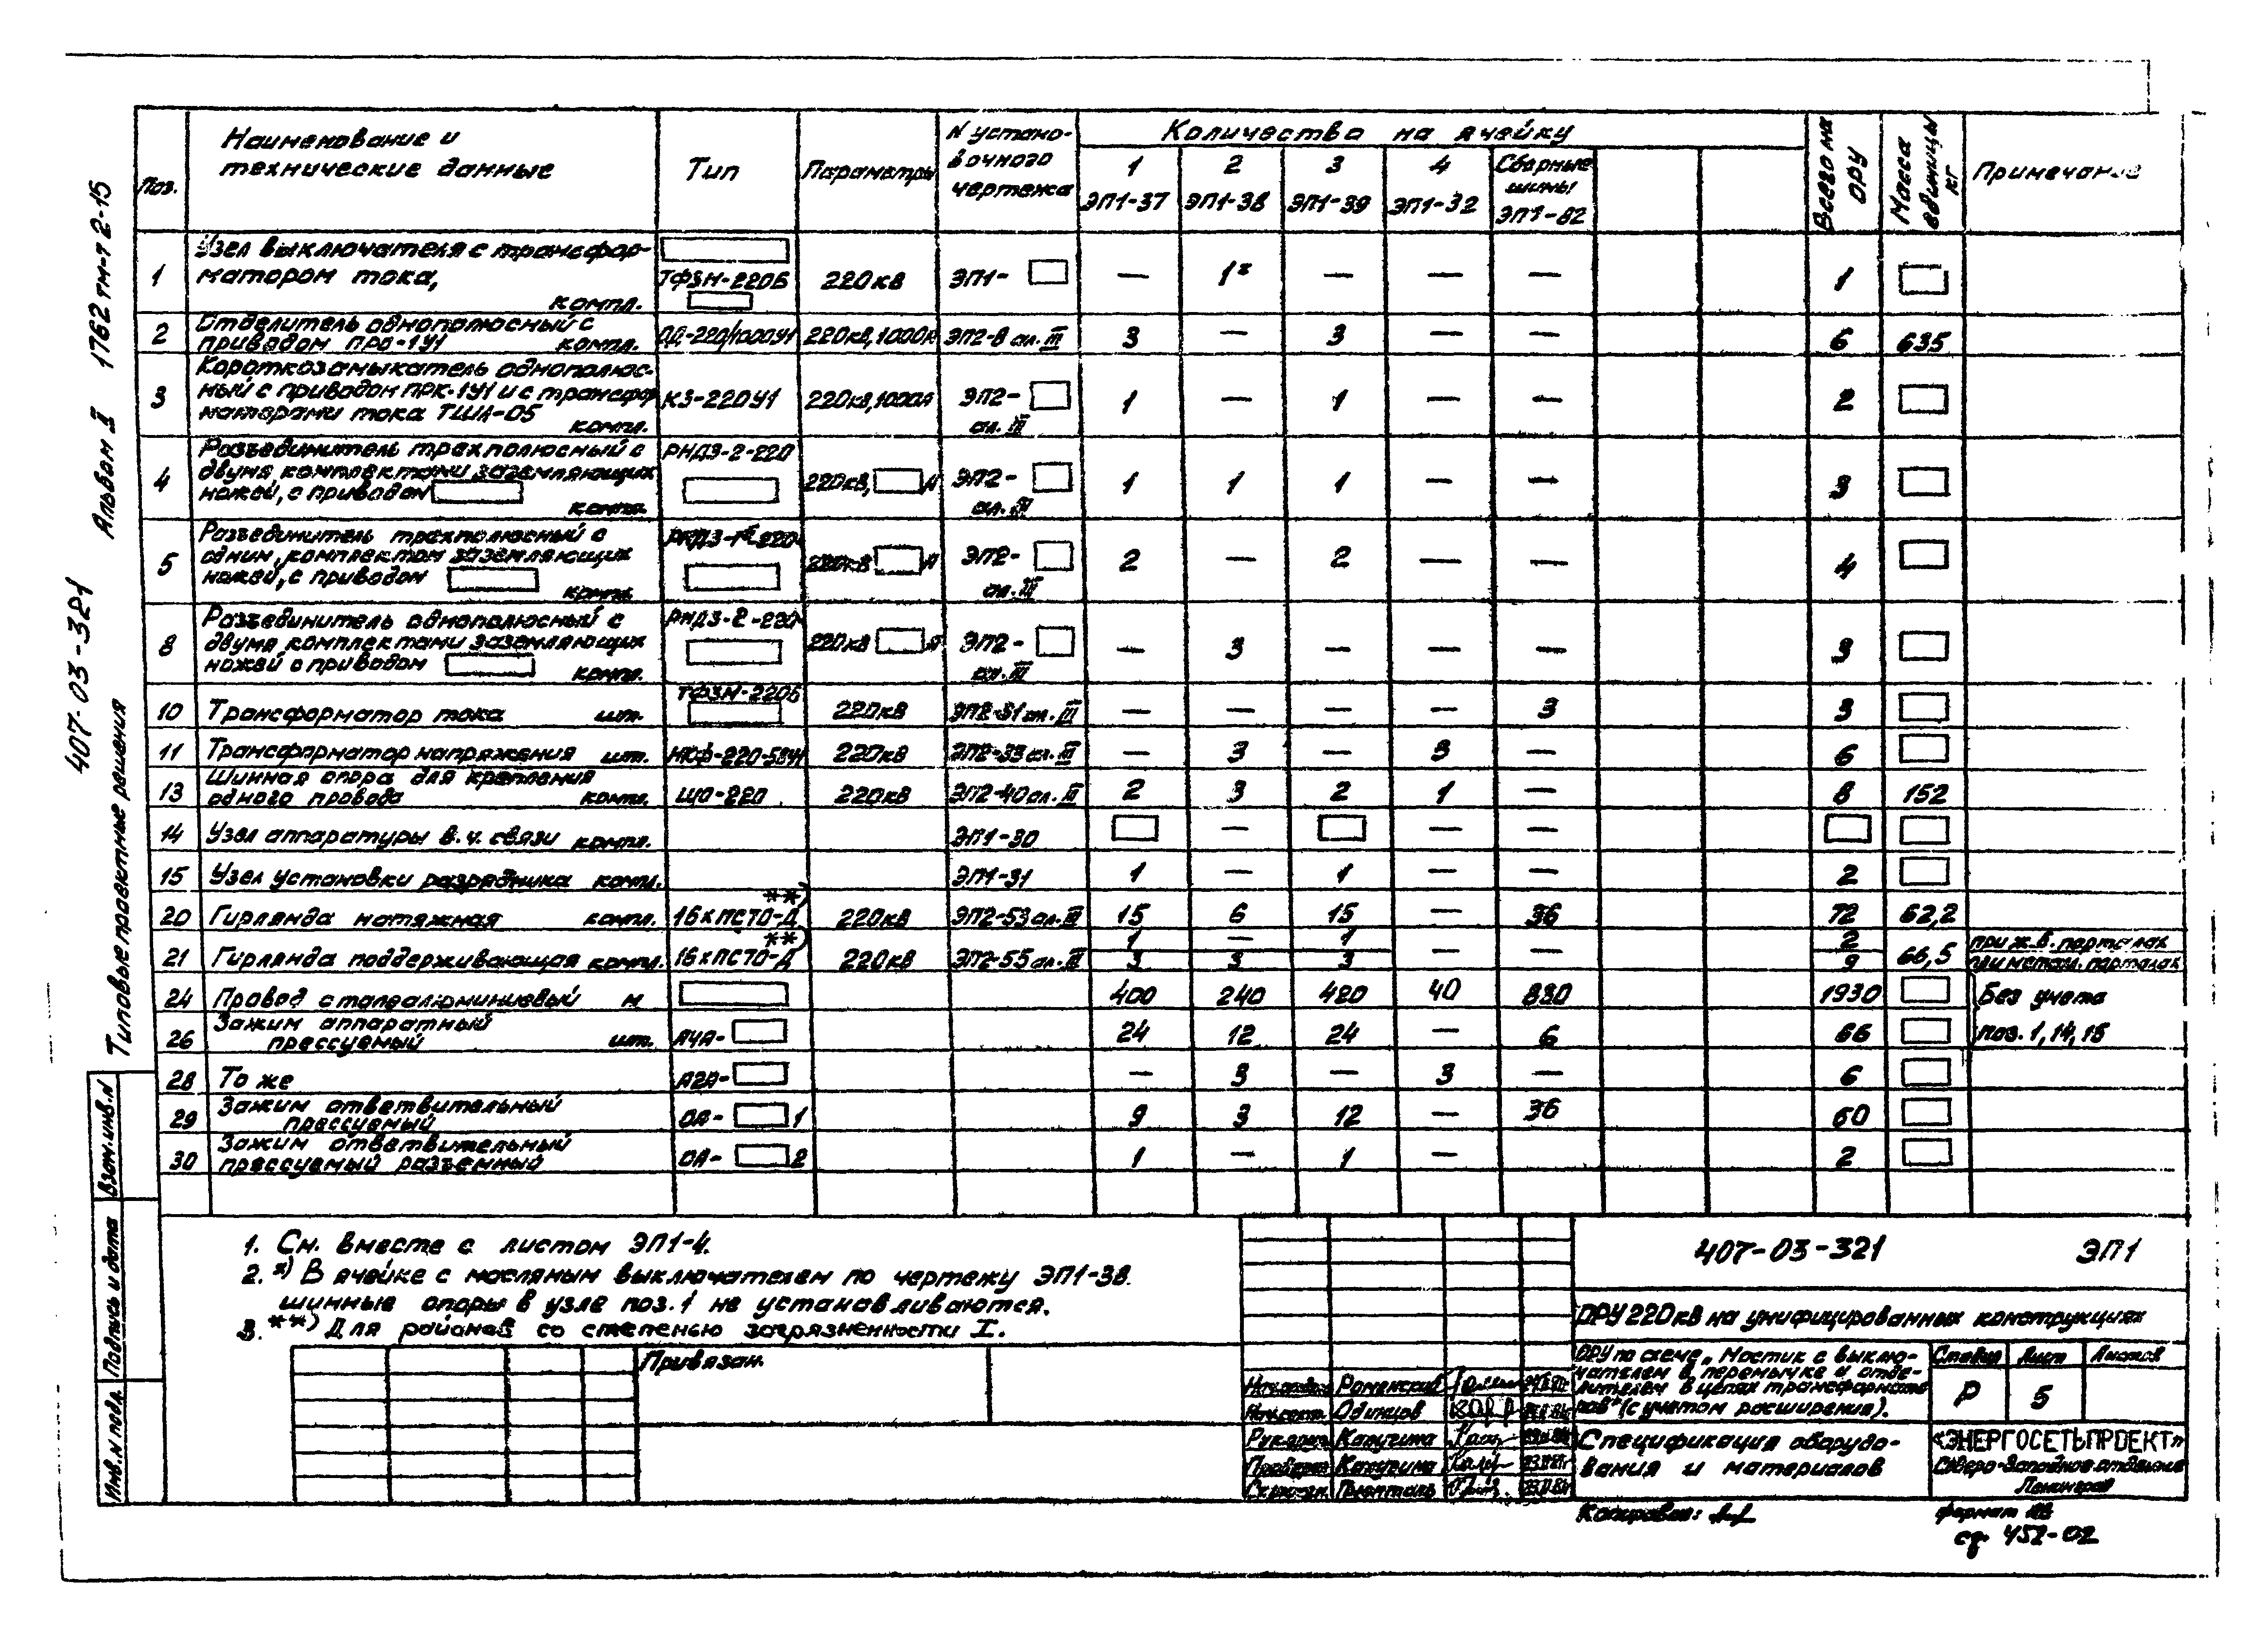 407-03-321
Типовые проектные решения
Альбом II
1762 тм-т 2-15
Поз.
Наименование и
технические данные
Тип
Параметры
N устано-
вочного
чертежа
Количество на ячейку
1
ЭП1-37
2
ЭП1-38
3
ЭП1-39
4
ЭП1-32
Сборные
шины
ЭП1-82
Всего на
ОРУ
Масса
единицы
кг
Примечание
1 Узел выключателя с трансфор-
матором тока, компл. ТФЗМ-220Б 220кВ ЭП1- — 1* — — — 1
2 Отделитель однополюсный с
приводом ПРО-1У1 компл. ОД-220/1000У1 220кВ, 1000А ЭП2-8 ал. III 3 — 3 — — 6 635
3 Короткозамыкатель однополюс-
ный с приводом ПРК-1У1 и с трансфор
маторами тока ТШЛ-05 КЗ-220У1 220кВ, 1000А ЭП2- 1 — 1 — — 2
компл. ал. III
4 Разъединитель трехполюсный с РНДЗ-2-220
двумя комплектами заземляющих
ножей, с приводом 220кВ, А ЭП2- 1 1 1 — — 3
компл. ал. III
5 Разъединитель трехполюсный с РНДЗ-1-220
одним, комплектом заземляющих
ножей, с приводом 220кВ А ЭП2- 2 — 2 — — 4
компл. ал. III
8 Разъединитель однополюсный с РНДЗ-2-220
двумя комплектами заземляющих
ножей с приводом 220кВ А ЭП2- — 3 — — — 3
компл. ал. III
10 Трансформатор тока шт. ТФЗМ-220Б 220кВ ЭП2-31 ал. III — — — — 3 3
11 Трансформатор напряжения шт. НКФ-220-58У1 220кВ ЭП2-33 ал. III — 3 — 3 — 6
13 Шинная опора для крепления
одного провода компл. ШО-220 220кВ ЭП2-40 ал. III 2 3 2 1 — 8 152
14 Узел аппаратуры в.ч. связи компл. ЭП1-30 — — —
15 Узел установки разрядника компл. ЭП1-31 1 — 1 — — 2
20 Гирлянда натяжная компл. 16хПС70-Д **) 220кВ ЭП2-53 ал. III 15 6 15 — 36 72 62,2
21 Гирлянда поддерживающая компл. 16хПС70-Д **) 220кВ ЭП2-55 ал. III 1 — 1 — — 2 66,5 при ж.б. порталах
3 3 3 9 при метал. порталах
24 Провод сталеалюминиевый м 400 240 420 40 830 1930 Без учета
26 Зажим аппаратный
прессуемый шт. А4А- 24 12 24 — 6 66 поз. 1, 14, 15
28 То же А2А- — 3 — 3 — 6
29 Зажим ответвительный
прессуемый ОА- 1 9 3 12 — 36 60
30 Зажим ответвительный
прессуемый разъемный ОА- 2 1 — 1 — 2
1. См. вместе с листом ЭП1-4.
2. *) В ячейке с масляным выключателем по чертежу ЭП1-38.
шинные опоры в узле поз. 1 не устанавливаются.
3. **) Для районов со степенью загрязненности I.
Привязан
Взам. инв. N
Подпись и дата
Инв. N подл.
407-03-321 ЭП1
ОРУ 220кВ на унифицированных конструкциях
ОРУ по схеме „Мостик с выклю-
чателем в перемычке и отде-
лителем в цепях трансформато
ров" (с учетом расширения).
Стадия Лист Листов
Р 5
Роменский
Одинцов
Капугина
Капугина
Спецификация оборудо-
вания и материалов
«ЭНЕРГОСЕТЬПРОЕКТ»
Северо-Западное отделение
Ленинград
Копировал:
формат
сф 452-02